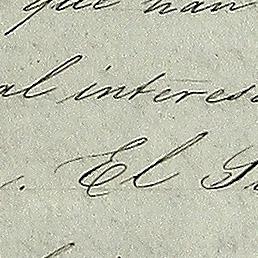 que han
al interes
. El